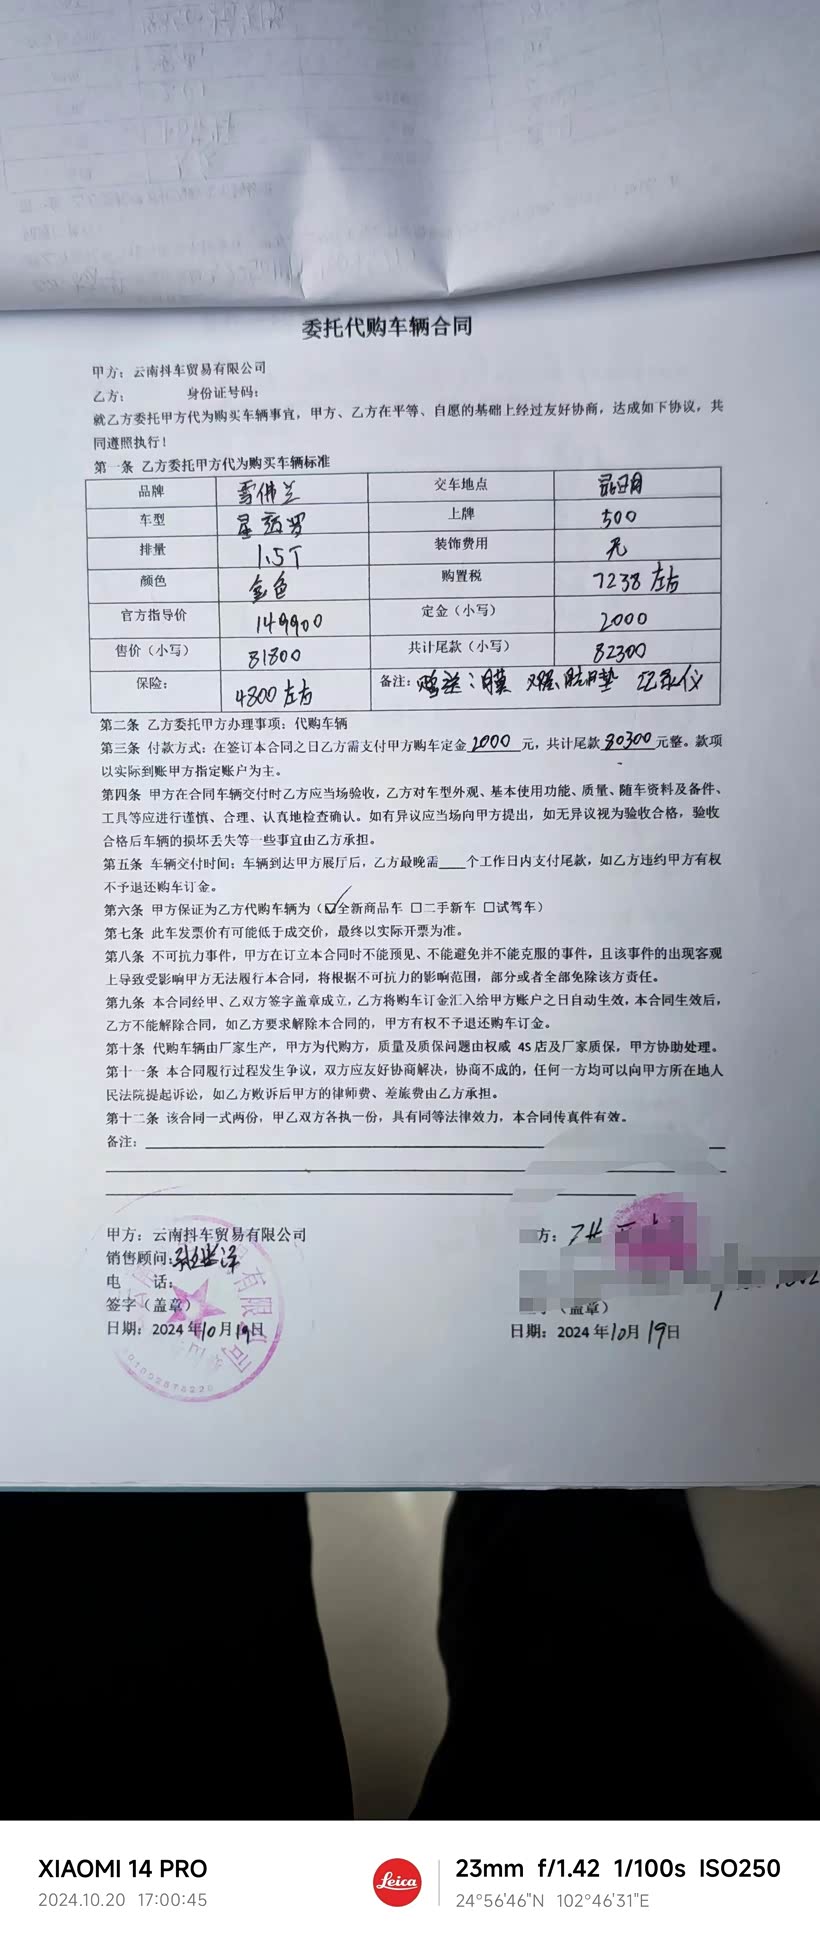 委托代购车辆合同
甲方：云南抖车贸易有限公司
乙方： 身份证号码：
就乙方委托甲方代为购买车辆事宜，甲方、乙方在平等、自愿的基础上经过友好协商，达成如下协议，共
同遵照执行！
第一条 乙方委托甲方代为购买车辆标准
品牌 雪佛兰 交车地点 昆明
车型 星迈罗 上牌 500
排量 1.5T 装饰费用 无
颜色 金色 购置税 7238 左右
官方指导价 149900 定金（小写） 2000
售价（小写） 81800 共计尾款（小写） 82300
保险： 4800 左右 备注：赠送：膜 脚垫 记录仪
第二条 乙方委托甲方办理事项：代购车辆
第三条 付款方式：在签订本合同之日乙方需支付甲方购车定金 2000 元，共计尾款 80300 元整。款项
以实际到账甲方指定账户为主。
第四条 甲方在合同车辆交付时乙方应当场验收，乙方对车型外观、基本使用功能、质量、随车资料及备件、
工具等应进行谨慎、合理、认真地检查确认。如有异议应当场向甲方提出，如无异议视为验收合格，验收
合格后车辆的损坏丢失等一些事宜由乙方承担。
第五条 车辆交付时间：车辆到达甲方展厅后，乙方最晚需____个工作日内支付尾款，如乙方违约甲方有权
不予退还购车订金。
第六条 甲方保证为乙方代购车辆为（☑全新商品车 □二手新车 □试驾车）
第七条 此车发票价有可能低于成交价，最终以实际开票为准。
第八条 不可抗力事件，甲方在订立本合同时不能预见、不能避免并不能克服的事件，且该事件的出现客观
上导致受影响甲方无法履行本合同，将根据不可抗力的影响范围，部分或者全部免除该方责任。
第九条 本合同经甲、乙双方签字盖章成立，乙方将购车订金汇入给甲方账户之日自动生效，本合同生效后，
乙方不能解除合同，如乙方要求解除本合同的，甲方有权不予退还购车订金。
第十条 代购车辆由厂家生产，甲方为代购方，质量及质保问题由权威 4S 店及厂家质保，甲方协助处理。
第十一条 本合同履行过程发生争议，双方应友好协商解决，协商不成的，任何一方均可以向甲方所在地人
民法院提起诉讼，如乙方败诉后甲方的律师费、差旅费由乙方承担。
第十二条 该合同一式两份，甲乙双方各执一份，具有同等法律效力，本合同传真件有效。
备注：
甲方：云南抖车贸易有限公司 方：
销售顾问：
电 话：
签字（盖章） （盖章）
日期：2024 年10月19日 日期：2024 年10月19日
XIAOMI 14 PRO
2024.10.20 17:00:45
Leica
23mm f/1.42 1/100s ISO250
24°56'46"N 102°46'31"E